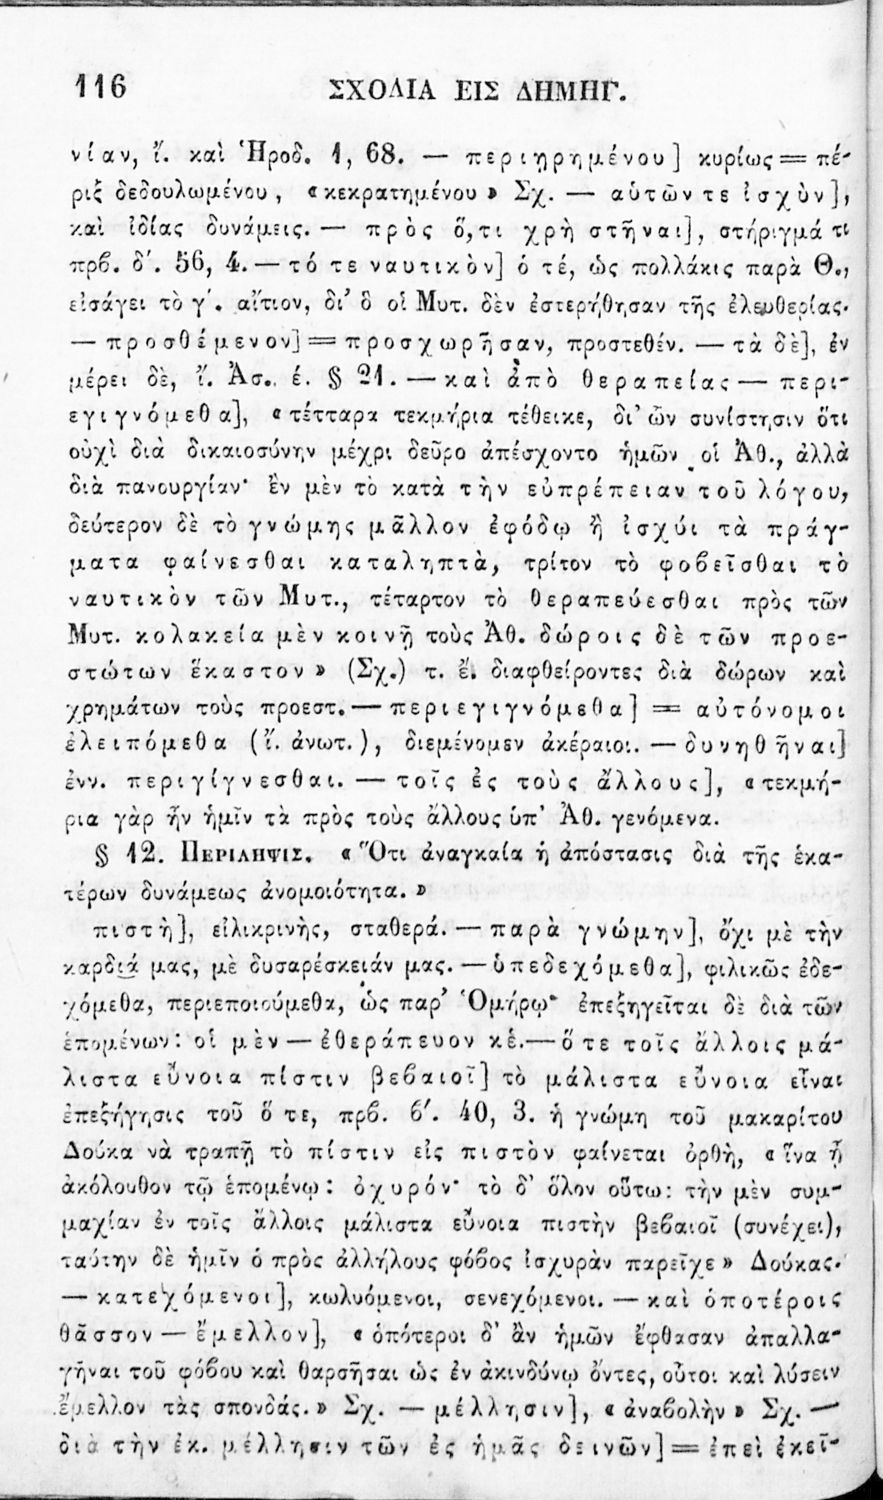 116 ΣΧΟΛΙΑ ΕΙΣ ΔΗΜΗΓ.
νίαν, ἴ. καὶ Ἡροδ. 1, 68. — περιῃρημένου] κυρίως = πέ-
ριξ δεδουλωμένου, «κεκρατημένου» Σχ. — αὐτῶν τε ἰσχὺν],
καὶ ἰδίας δυνάμεις. — πρὸς ὅ,τι χρὴ στῆναι], στήριγμά τι
πρβ. δ'. 56, 4. — τό τε ναυτικὸν] ὁ τέ, ὡς πολλάκις παρὰ Θ.,
εἰσάγει τὸ γ'. αἴτιον, δι' ὃ οἱ Μυτ. δὲν ἐστερήθησαν τῆς ἐλευθερίας.
— προσθέμενον] = προσχωρῆσαν, προστεθέν. — τὰ δὲ], ἐν
μέρει δὲ, ἴ. Ἀσ. έ. § 21. — καὶ ἀπὸ θεραπείας — περι-
εγιγνόμεθα], «τέτταρα τεκμήρια τέθεικε, δι' ὧν συνίστησιν ὅτι
οὐχὶ διὰ δικαιοσύνην μέχρι δεῦρο ἀπέσχοντο ἡμῶν οἱ Ἀθ., ἀλλὰ
διὰ πανουργίαν· ἓν μὲν τὸ κατὰ τὴν εὐπρέπειαν τοῦ λόγου,
δεύτερον δὲ τὸ γνώμης μᾶλλον ἐφόδῳ ἢ ἰσχύι τὰ πράγ-
ματα φαίνεσθαι καταληπτὰ, τρίτον τὸ φοβεῖσθαι τὸ
ναυτικὸν τῶν Μυτ., τέταρτον τὸ θεραπεύεσθαι πρὸς τῶν
Μυτ. κολακεία μὲν κοινῇ τοὺς Ἀθ. δώροις δὲ τῶν προε-
στώτων ἕκαστον» (Σχ.) τ. ἔ. διαφθείροντες διὰ δώρων καὶ
χρημάτων τοὺς προεστ. — περιεγιγνόμεθα] = αὐτόνομοι
ἐλειπόμεθα (ἴ. ἀνωτ.), διεμένομεν ἀκέραιοι. — δυνηθῆναι]
ἐνν. περιγίγνεσθαι. — τοῖς ἐς τοὺς ἄλλους], «τεκμή-
ρια γὰρ ἦν ἡμῖν τὰ πρὸς τοὺς ἄλλους ὑπ' Ἀθ. γενόμενα.
§ 12. ΠΕΡΙΛΗΨΙΣ. «Ὅτι ἀναγκαία ἡ ἀπόστασις διὰ τῆς ἑκα-
τέρων δυνάμεως ἀνομοιότητα.»
πιστὴ], εἰλικρινὴς, σταθερά. — παρὰ γνώμην], ὄχι μὲ τὴν
καρδιά μας, μὲ δυσαρέσκειάν μας. — ὑπεδεχόμεθα], φιλικῶς ἐδε-
χόμεθα, περιεποιούμεθα, ὡς παρ' Ὁμήρῳ· ἐπεξηγεῖται δὲ διὰ τῶν
ἑπομένων: οἱ μὲν — ἐθεράπευον κέ. — ὅτε τοῖς ἄλλοις μά-
λιστα εὔνοια πίστιν βεβαιοῖ] τὸ μάλιστα εὔνοια εἶναι
ἐπεξήγησις τοῦ ὅ τε, πρβ. β'. 40, 3. ἡ γνώμη τοῦ μακαρίτου
Δούκα νὰ τραπῇ τὸ πίστιν εἰς πιστὸν φαίνεται ὀρθὴ, «ἵνα ᾖ
ἀκόλουθον τῷ ἑπομένῳ: ὀχυρόν· τὸ δ' ὅλον οὕτω: τὴν μὲν συμ-
μαχίαν ἐν τοῖς ἄλλοις μάλιστα εὔνοια πιστὴν βεβαιοῖ (συνέχει),
ταύτην δὲ ἡμῖν ὁ πρὸς ἀλλήλους φόβος ἰσχυρὰν παρεῖχε» Δούκας.
— κατεχόμενοι], κωλυόμενοι, σενεχόμενοι. — καὶ ὁποτέροις
θᾶσσον — ἔμελλον], «ὁπότεροι δ' ἂν ἡμῶν ἔφθασαν ἀπαλλα-
γῆναι τοῦ φόβου καὶ θαρσῆσαι ὡς ἐν ἀκινδύνῳ ὄντες, οὗτοι καὶ λύσειν
ἔμελλον τὰς σπονδάς.» Σχ. — μέλλησιν], «ἀναβολὴν» Σχ. —
διὰ τὴν ἐκ. μέλλησιν τῶν ἐς ἡμᾶς δεινῶν] = ἐπεὶ ἐκεῖ-